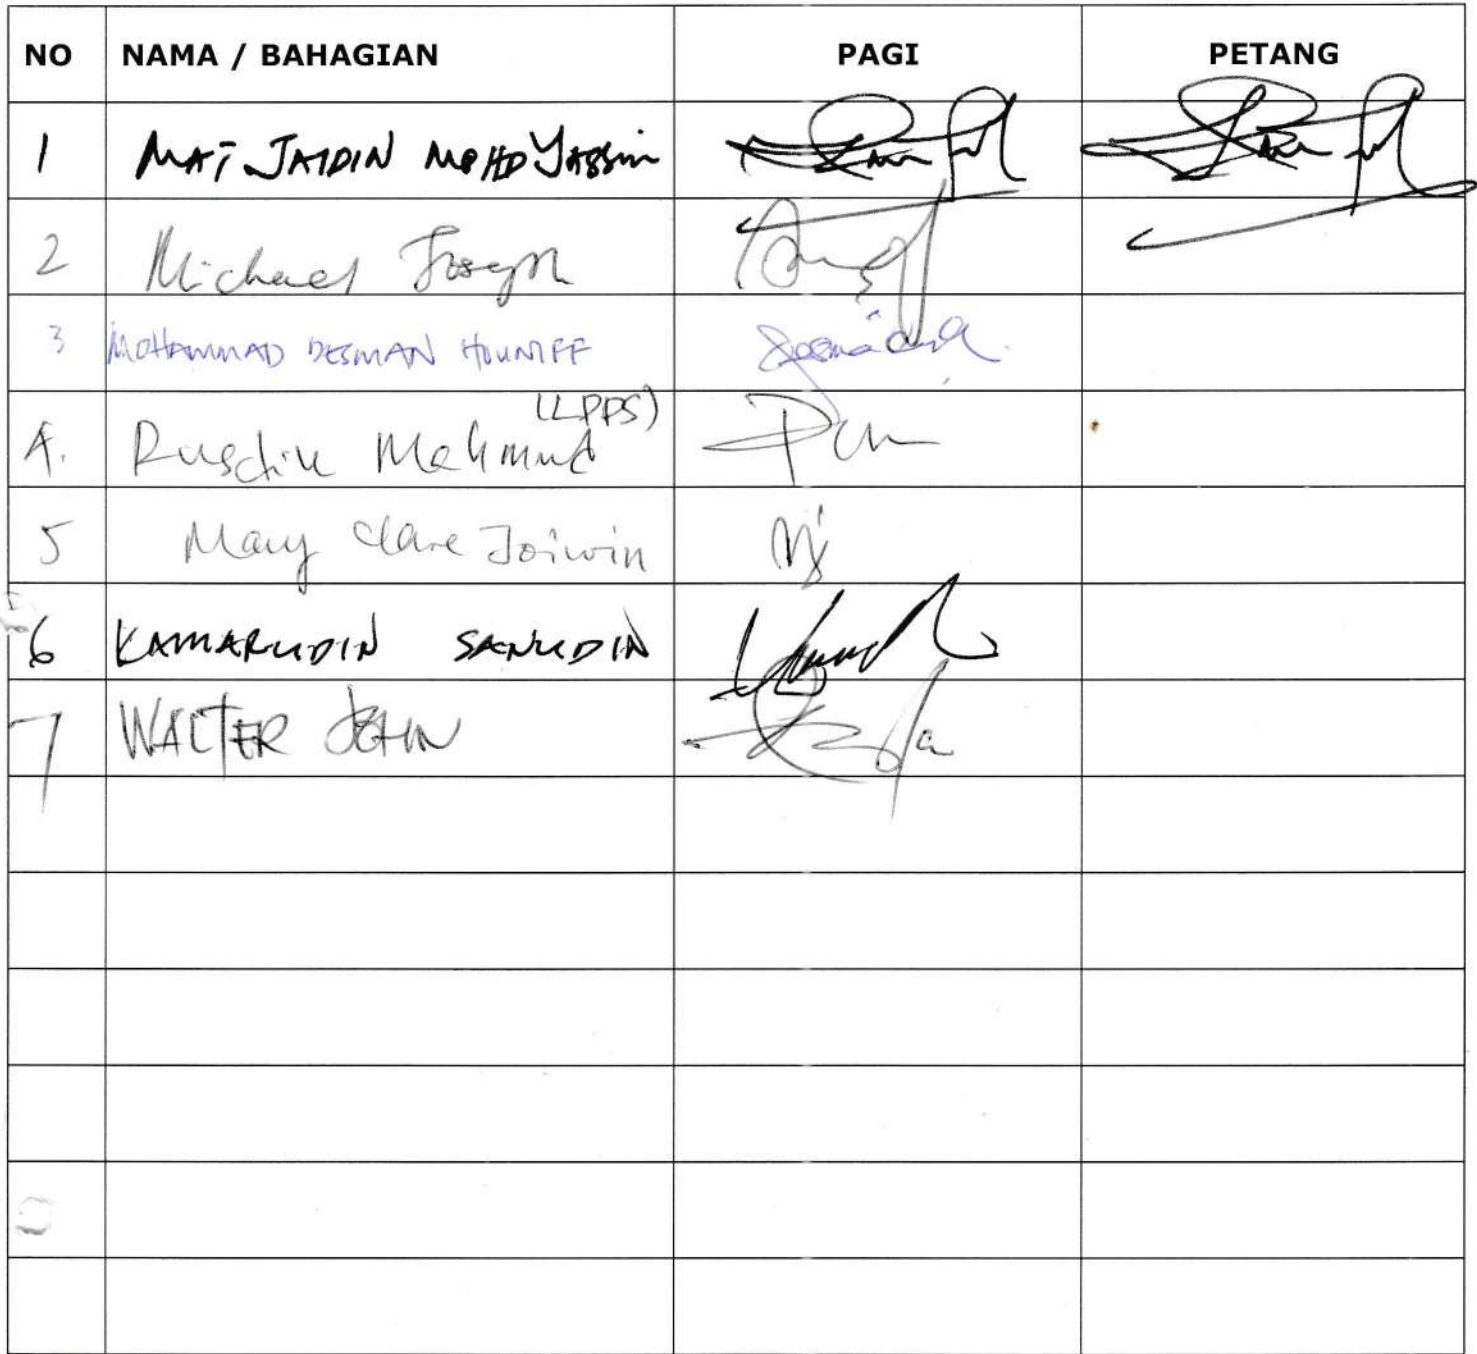 NO NAMA / BAHAGIAN PAGI PETANG
1 MAT JAIDIN MOHD YASSIN
2 Michael Joseph
3 MOHAMMAD DESMAN HOUNIFF
4. Rusdin Mahmud (LPPS)
5 Mary Clare Joiwin
6 KAMARUDIN SANUDIN
7 WALTER JOHN